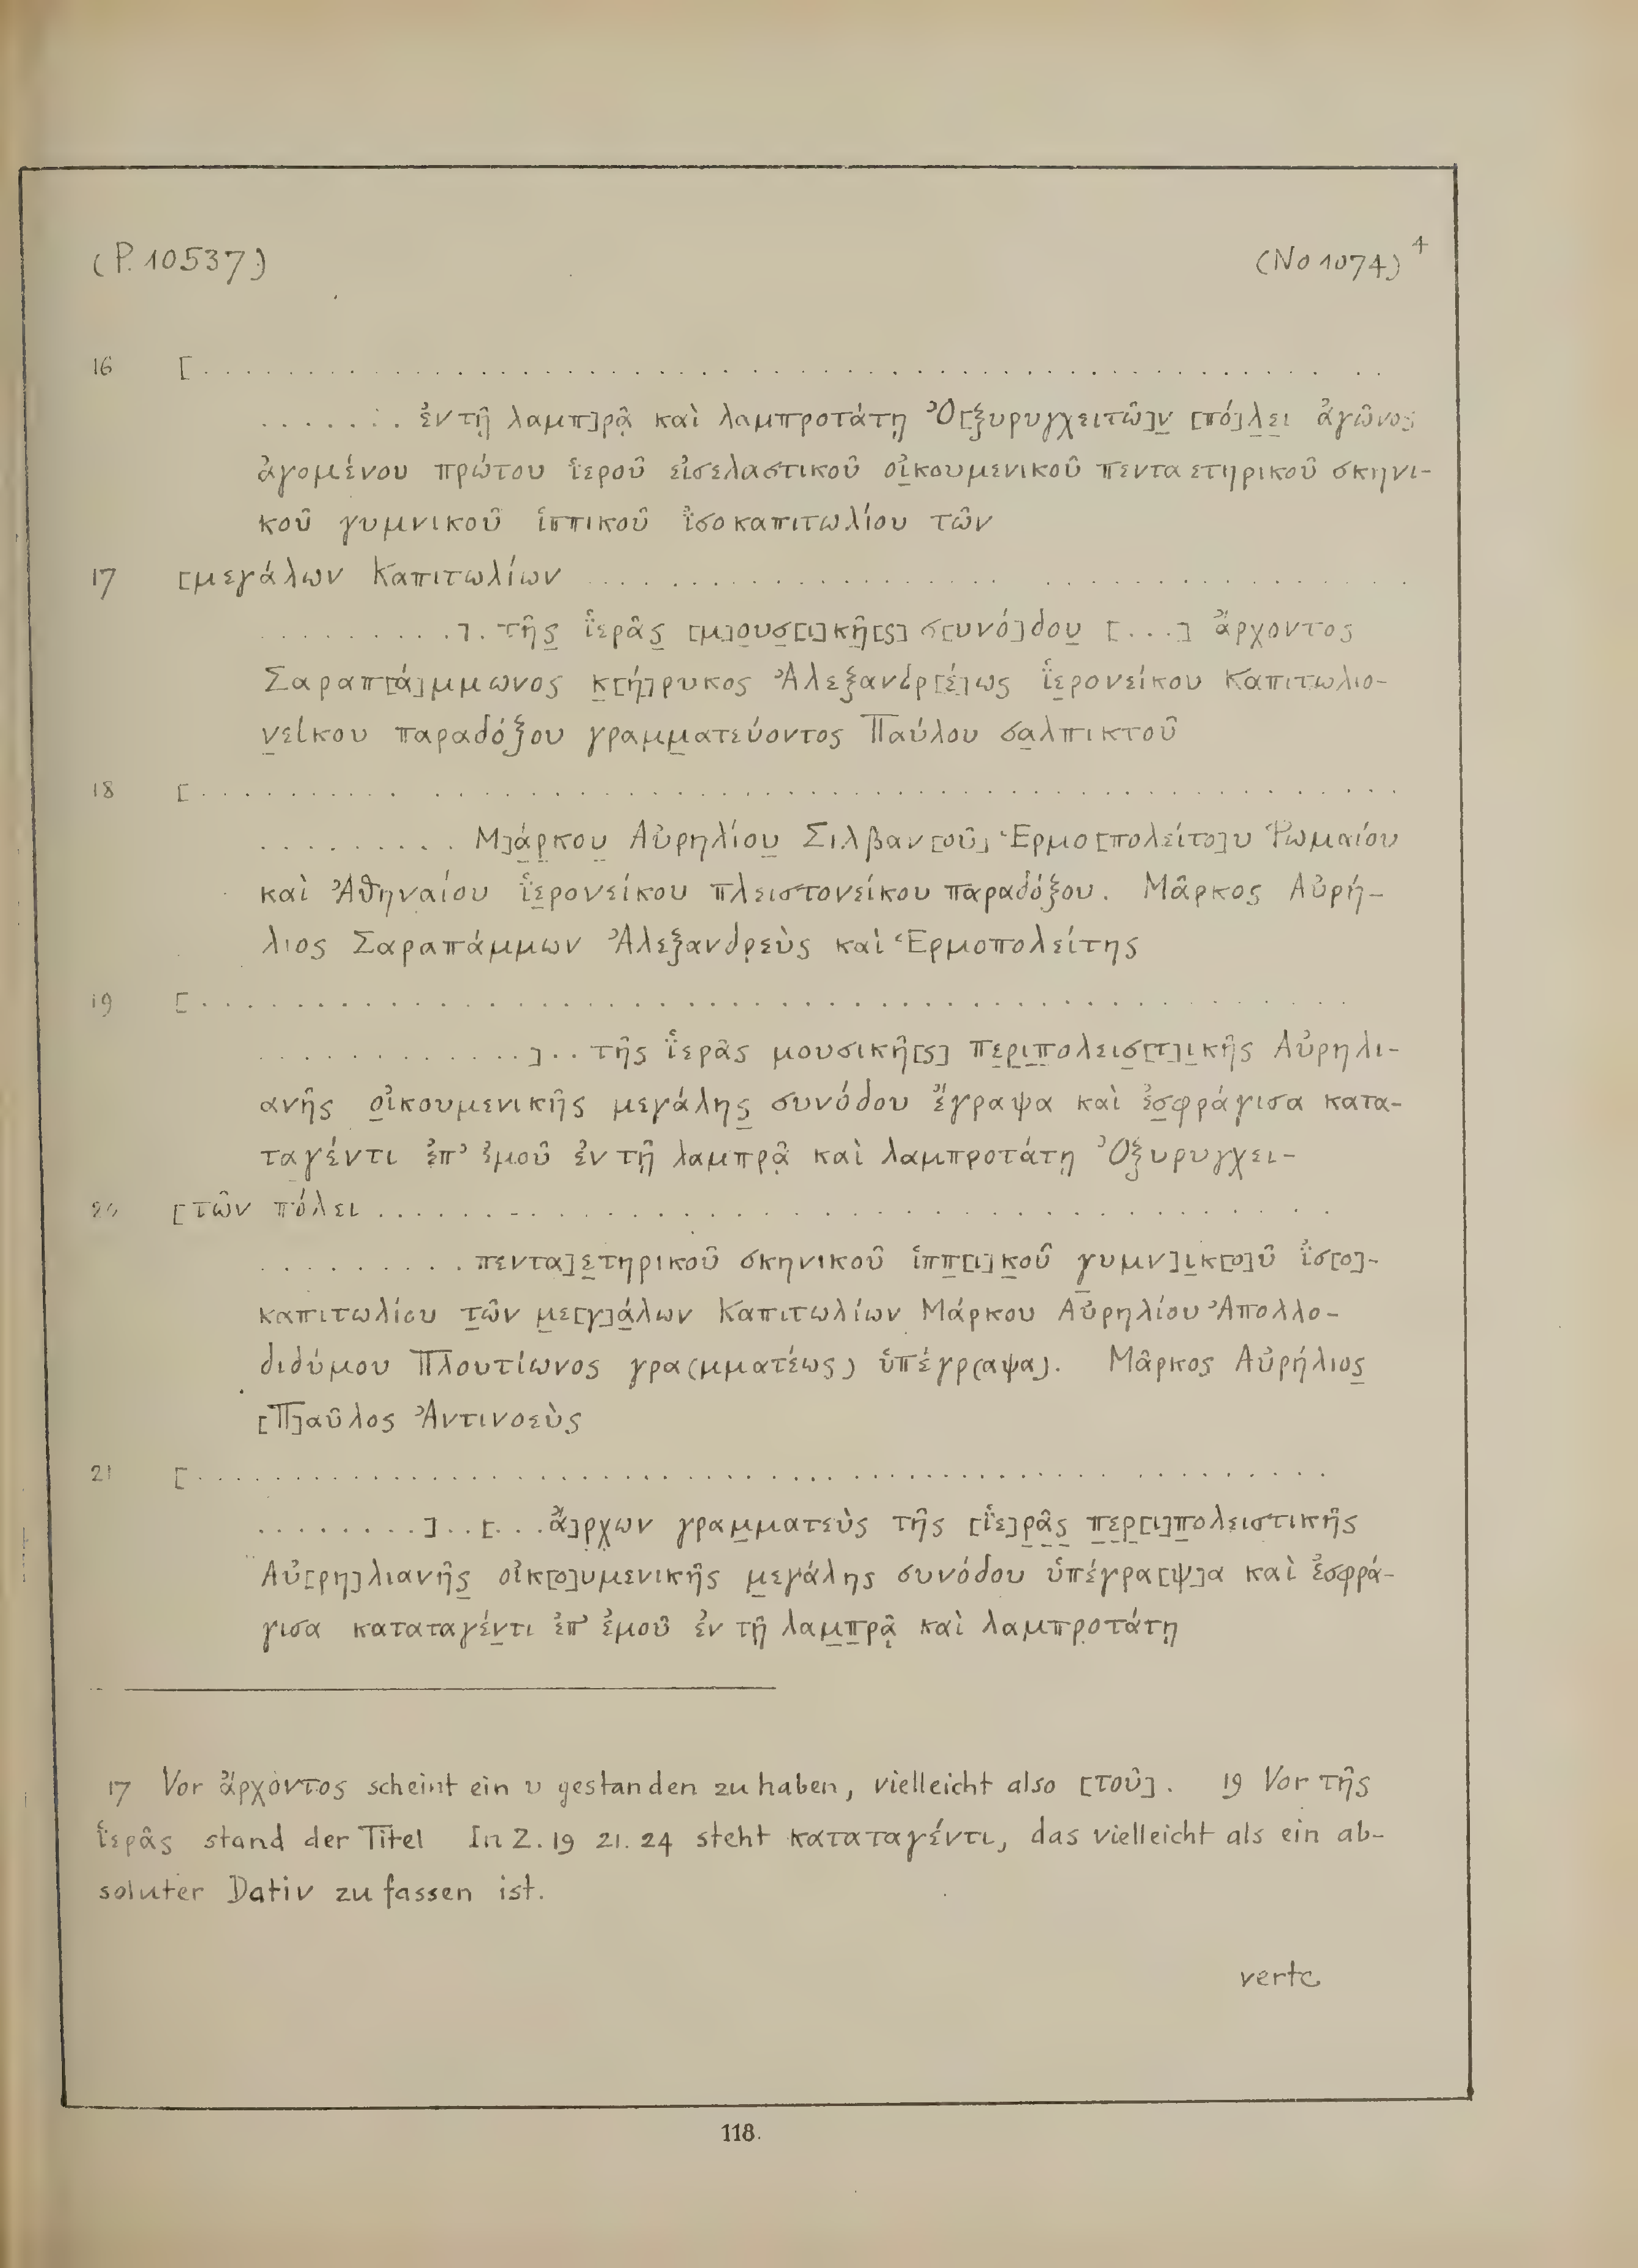 (P. 10537) (No 1074) 4
16 [. . . . . . . . . . . . . . . . . . . . . . . . . . . . . . . . . . . . . . . .
. . . . . . . . ἐν τῇ λαμπ]ρᾷ καὶ λαμπροτάτῃ Ὀ[ξυρυγχειτῶ]ν̣ [πό]λ̣ε̣ι̣ ἀγῶνος
ἀγομένου πρώτου ἱεροῦ εἰσελαστικοῦ ο̣ἰκουμενικοῦ πενταετηρικοῦ σκηνι-
κοῦ γυμνικοῦ ἱππικοῦ ἰσοκαπιτωλίου τῶν
17 [μεγάλων Καπιτωλίων . . . . . . . . . . . . . . . . . . . . . . . . . . .
. . . . . . . . . ]. τῆς̣ ϊἑρᾶς̣ [μ]ο̣υσ̣[ι]κ̣ῆ̣[ς] σ[υνό]δου̣ [...] ἄρχοντος
Σαραπ[ά]μμωνος κ̣[ή]ρυκος Ἀλεξανδρ[έ]ως ϊἑ̣ρονείκου Καπιτωλιο-
ν̣είκου παραδόξου γραμμ̣ατεύοντος Παύλου σα̣λπικτοῦ
18 [. . . . . . . . . . . . . . . . . . . . . . . . . . . . . . . . . . . . . . . .
. . . . . . . . . Μ]ά̣ρ̣κου̣ Αὐρηλίου̣ Σιλβαν[οῦ] Ἑρμο[πολείτο]υ Ῥωμαίου
καὶ Ἀθηναίου ϊἑ̣ρονείκου πλειστονείκου παραδόξου. Μᾶρκος Αὐρή-
λιος Σαραπάμμων Ἀλεξανδρεὺς καὶ Ἑρμοπολείτης
19 [. . . . . . . . . . . . . . . . . . . . . . . . . . . . . . . . . . . . . . . .
. . . . . . . . . . . . ]. . τῆς ϊἑρᾶς μουσικῆ[ς] πε̣ρ̣ι̣π̣ολεισ̣[τ]ι̣κῆς Αὐρηλι-
ανῆς ο̣ἰκουμενικῆς μεγάλης̣ συνόδου ἔγραψα καὶ ἐσ̣φράγισα κατα-
ταγέντι ἐπ' ἐμοῦ ἐν τῇ λαμπρᾷ καὶ λαμπροτάτῃ Ὀξυρυγχει-
20 [τῶν πόλει . . . . . . . . . . . . . . . . . . . . . . . . . . . . . . .
. . . . . . . . . πεντα]ε̣τηρικοῦ σκηνικοῦ ἱππ̣[ι]κ̣οῦ γ̣υμν]ι̣κ[ο]ῦ ἰσ[ο]-
καπιτωλίου τ̣ῶν μ̣ε[γ]ά̣λων Καπιτωλίων Μάρκου Αὐρηλίου Ἀπολλο-
διδύμου Πλουτίωνος γρα(μματέως) ὑπέγρ(αψα). Μᾶρκος Αὐρήλιος̣
[Π]αῦλος Ἀντινοεὺς
21 [. . . . . . . . . . . . . . . . . . . . . . . . . . . . . . . . . . . . . . . .
. . . . . . . . ]. . [. . . ἄ]ρχων γραμ̣ματεὺς τῆς [ϊἑ]ρ̣ᾶ̣ς̣ π̣ε̣ρ̣[ι]π̣ολειστικῆς
Αὐ[ρη]λιανῆς̣ οἰκ[ο]υμενικῆς μ̣εγάλης συνόδου ὑπέγρα[ψ]α καὶ ἐσφρά-
γισα καταταγέν̣τι ἐπ' ἐμοῦ ἐν τῇ λαμ̣π̣ρᾷ̣ καὶ λαμπροτάτῃ
17 Vor ἄρχοντος scheint ein υ gestanden zu haben, vielleicht also [τοῦ]. 19 Vor τῆς
ϊἑρᾶς stand der Titel In Z. 19 21. 24 steht καταταγέντι, das vielleicht als ein ab-
soluter Dativ zu fassen ist.
verte
118.